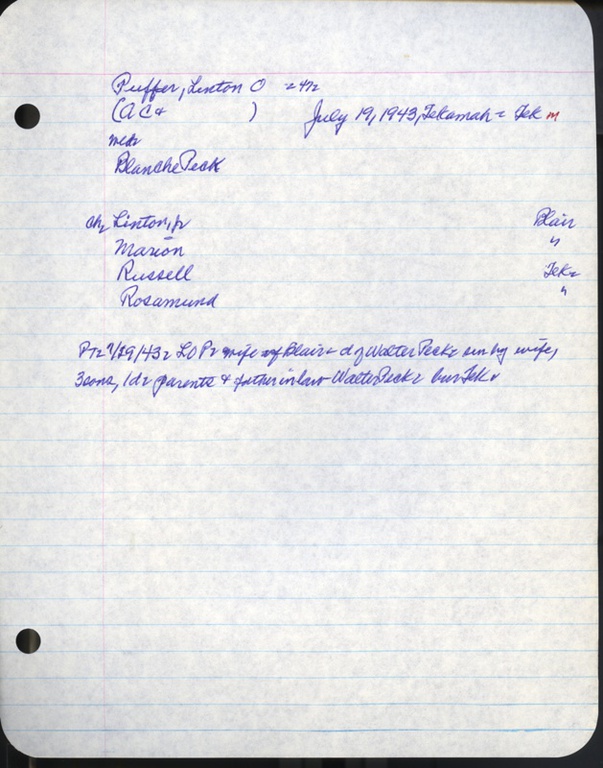 Puffer, Linton O = 42
(AC & ) July 19, 1943, Tekamah = Tek m
Blanche Peck
ch, Linton, jr Blair
Marion "
Russell Tek=
Rosamund "
7/29/43= LOP= wife of Blair + d of Walter Peck= sur by wife,
3 sons, 1 d= parents & father in law Walter Peck= bur Tek.